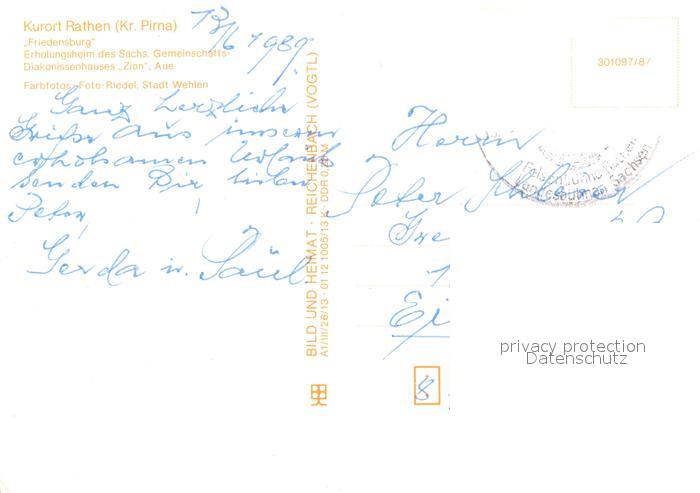 Kurort Rathen (Kr. Pirna)
„Friedensburg"
Erholungsheim des Sächs. Gemeinschafts-
Diakonissenhauses „Zion", Aue
Farbfotos: Foto-Riedel, Stadt Wehlen
13/6 1989.
Ganz herzliche
Grüße aus unserem
erholsamen Urlaub
senden Dir lieber
Peter,
Gerda u. Saul.
BILD UND HEIMAT · REICHENBACH (VOGTL)
A1/III/26/13 · 01 12 1005/13 K · DDR 0, M
301097/8/
Felsenbühne Rathen
Landesbühnen Sachsen
Herrn
Peter
Ei
8
privacy protection
Datenschutz